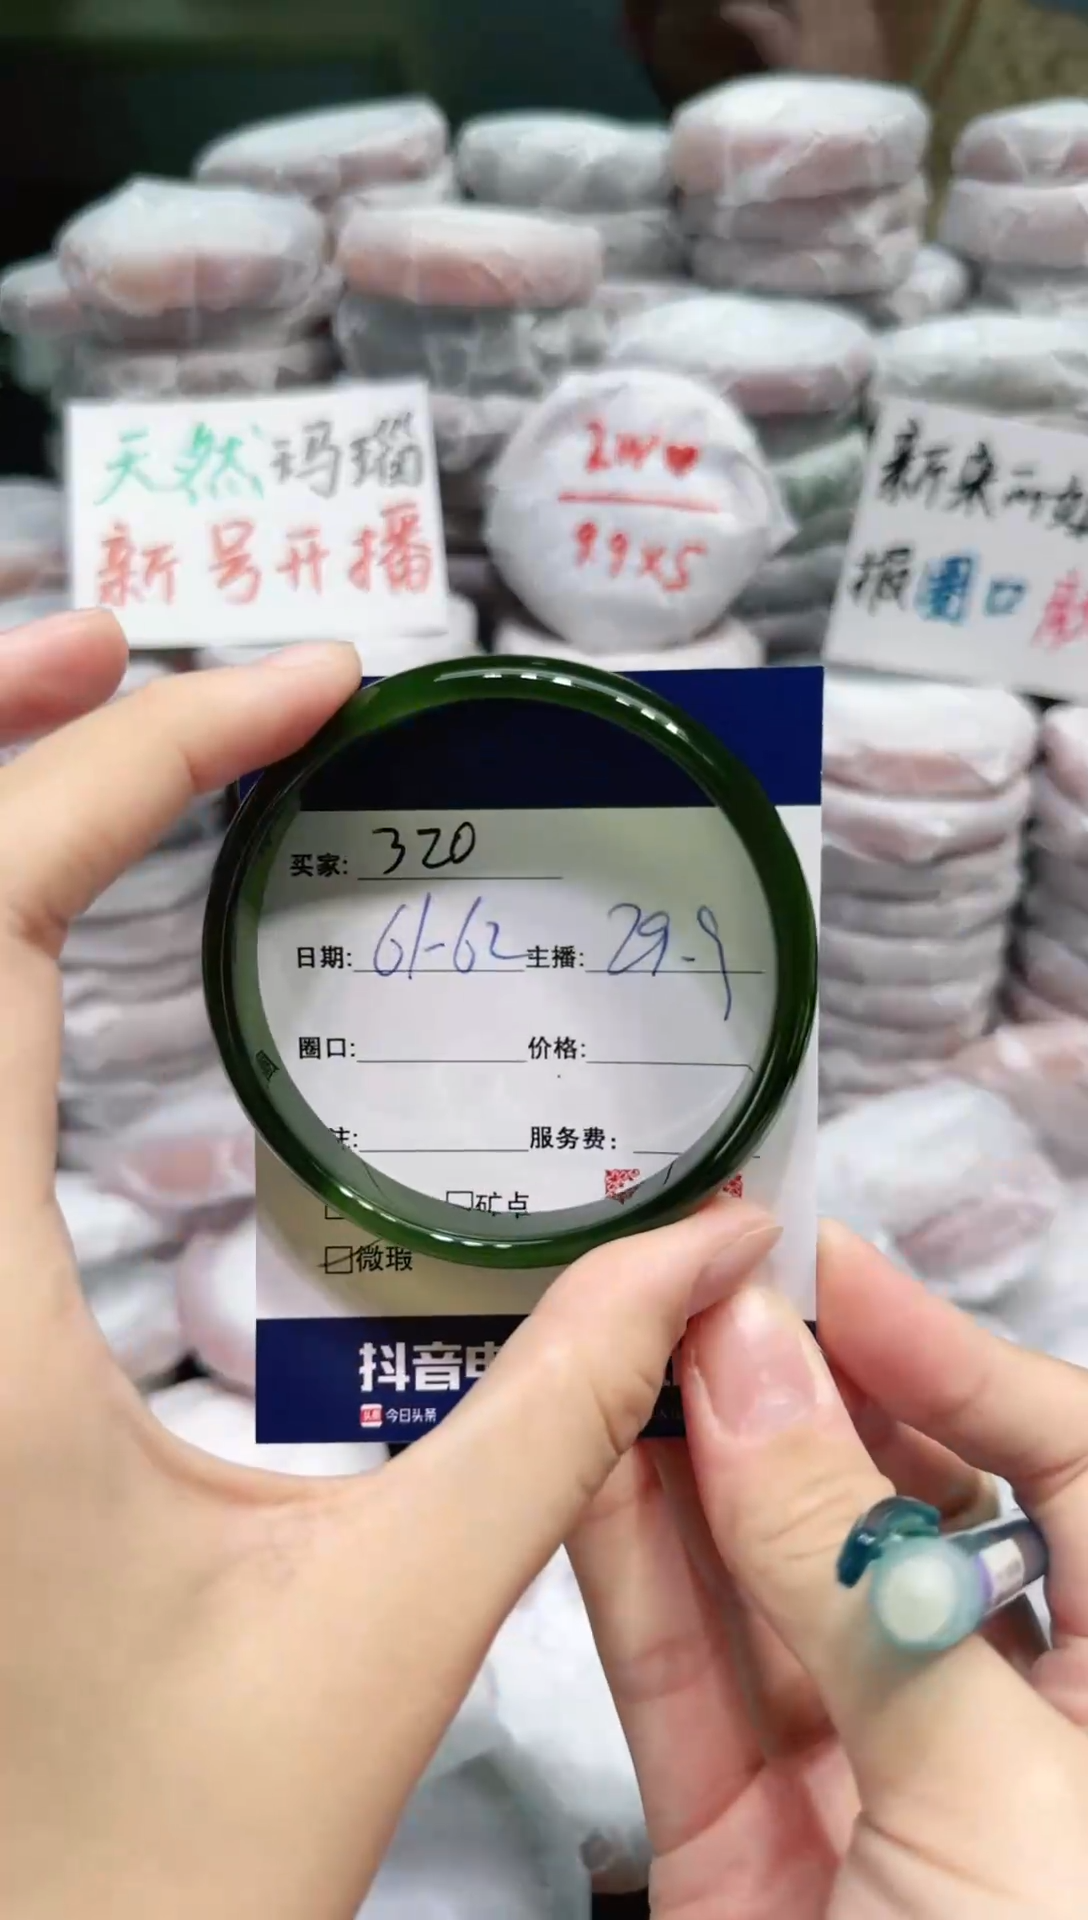 天然玛瑙
新号开播
2W❤
99x5
新来
报圈口
买家: 320
日期: 61-62 主播: 29.9
圈口: 价格:
注: 服务费:
矿点
微瑕
抖音电
头条 今日头条